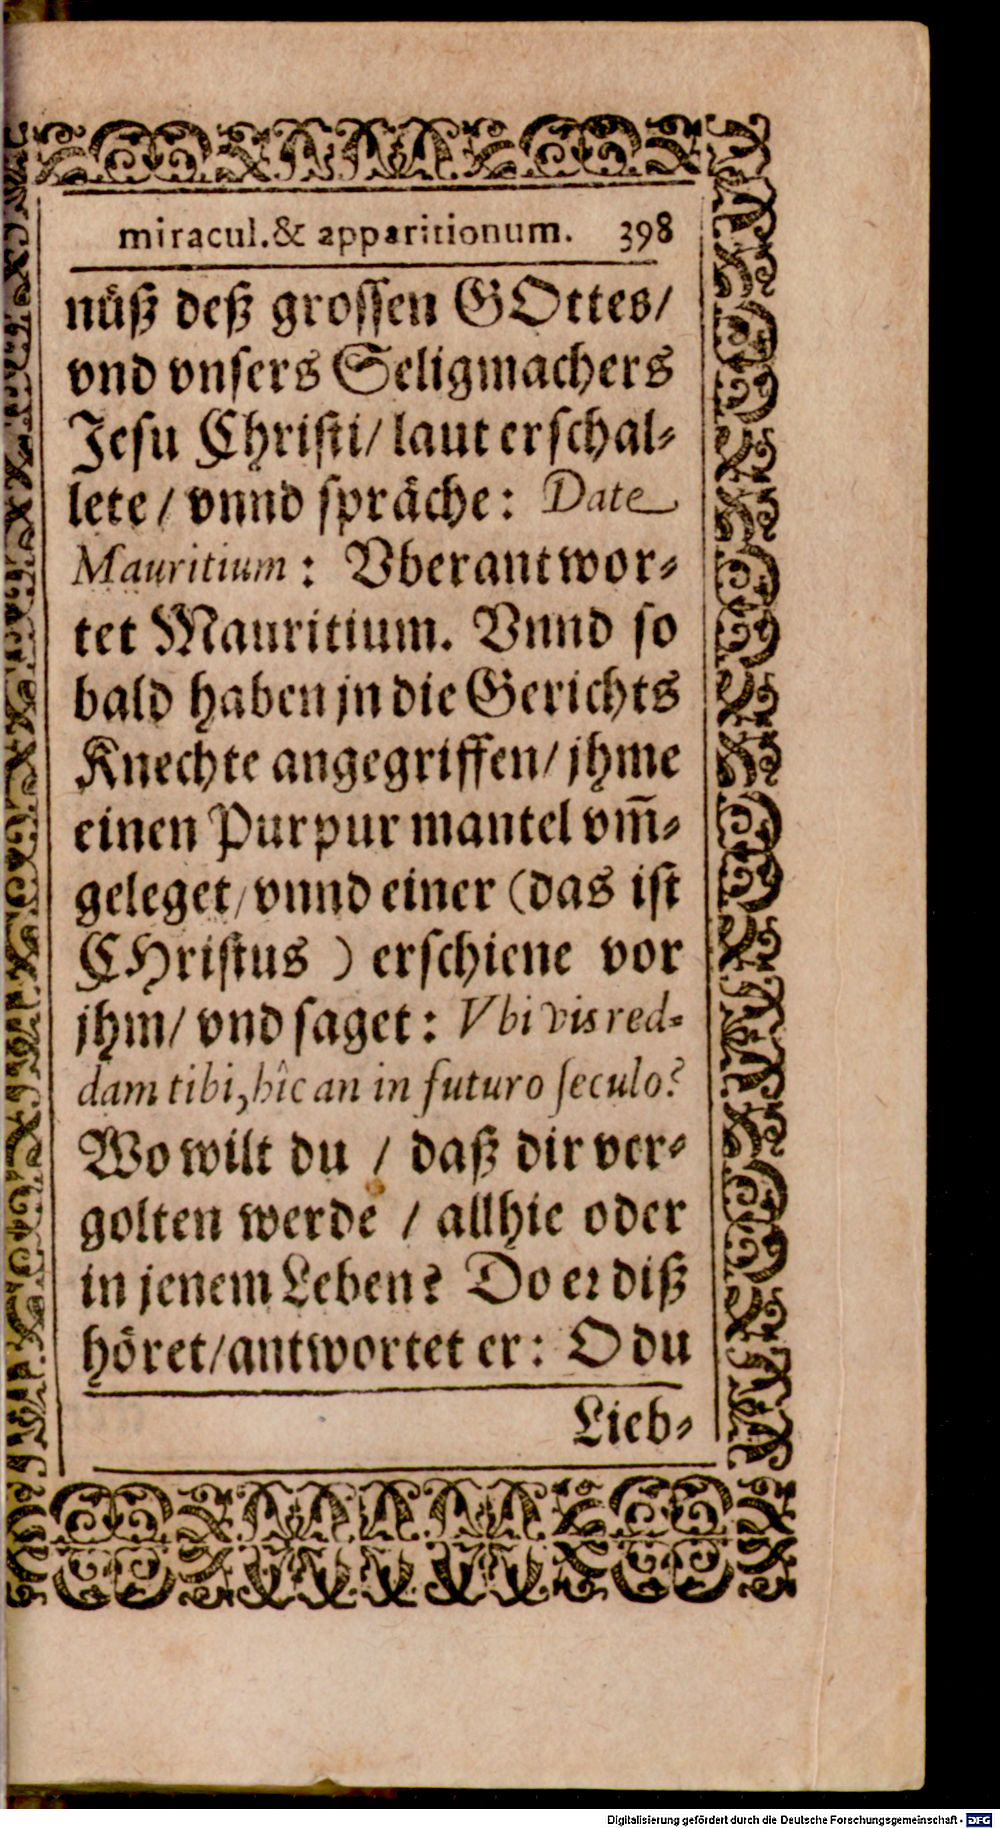 miracul. & apparitionum. 398
nüß deß grossen GOttes/
vnd vnsers Seligmachers
Jesu Christi/ laut erschal-
lete/ vnnd spräche: Date
Mauritium: Vberantwor-
tet Mauritium. Vnnd so
bald haben jn die Gerichts
Knechte angegriffen/ jhme
einen Purpur mantel vm̃-
geleget/ vnnd einer (das ist
CHristus) erschiene vor
jhm/ vnd saget: Vbi vis red-
dam tibi, hîc an in futuro seculo?
Wo wilt du / daß dir ver-
golten werde / allhie oder
in jenem Leben? Do er diß
höret/ antwortet er: O du
Lieb-
Digitalisierung gefördert durch die Deutsche Forschungsgemeinschaft - DFG